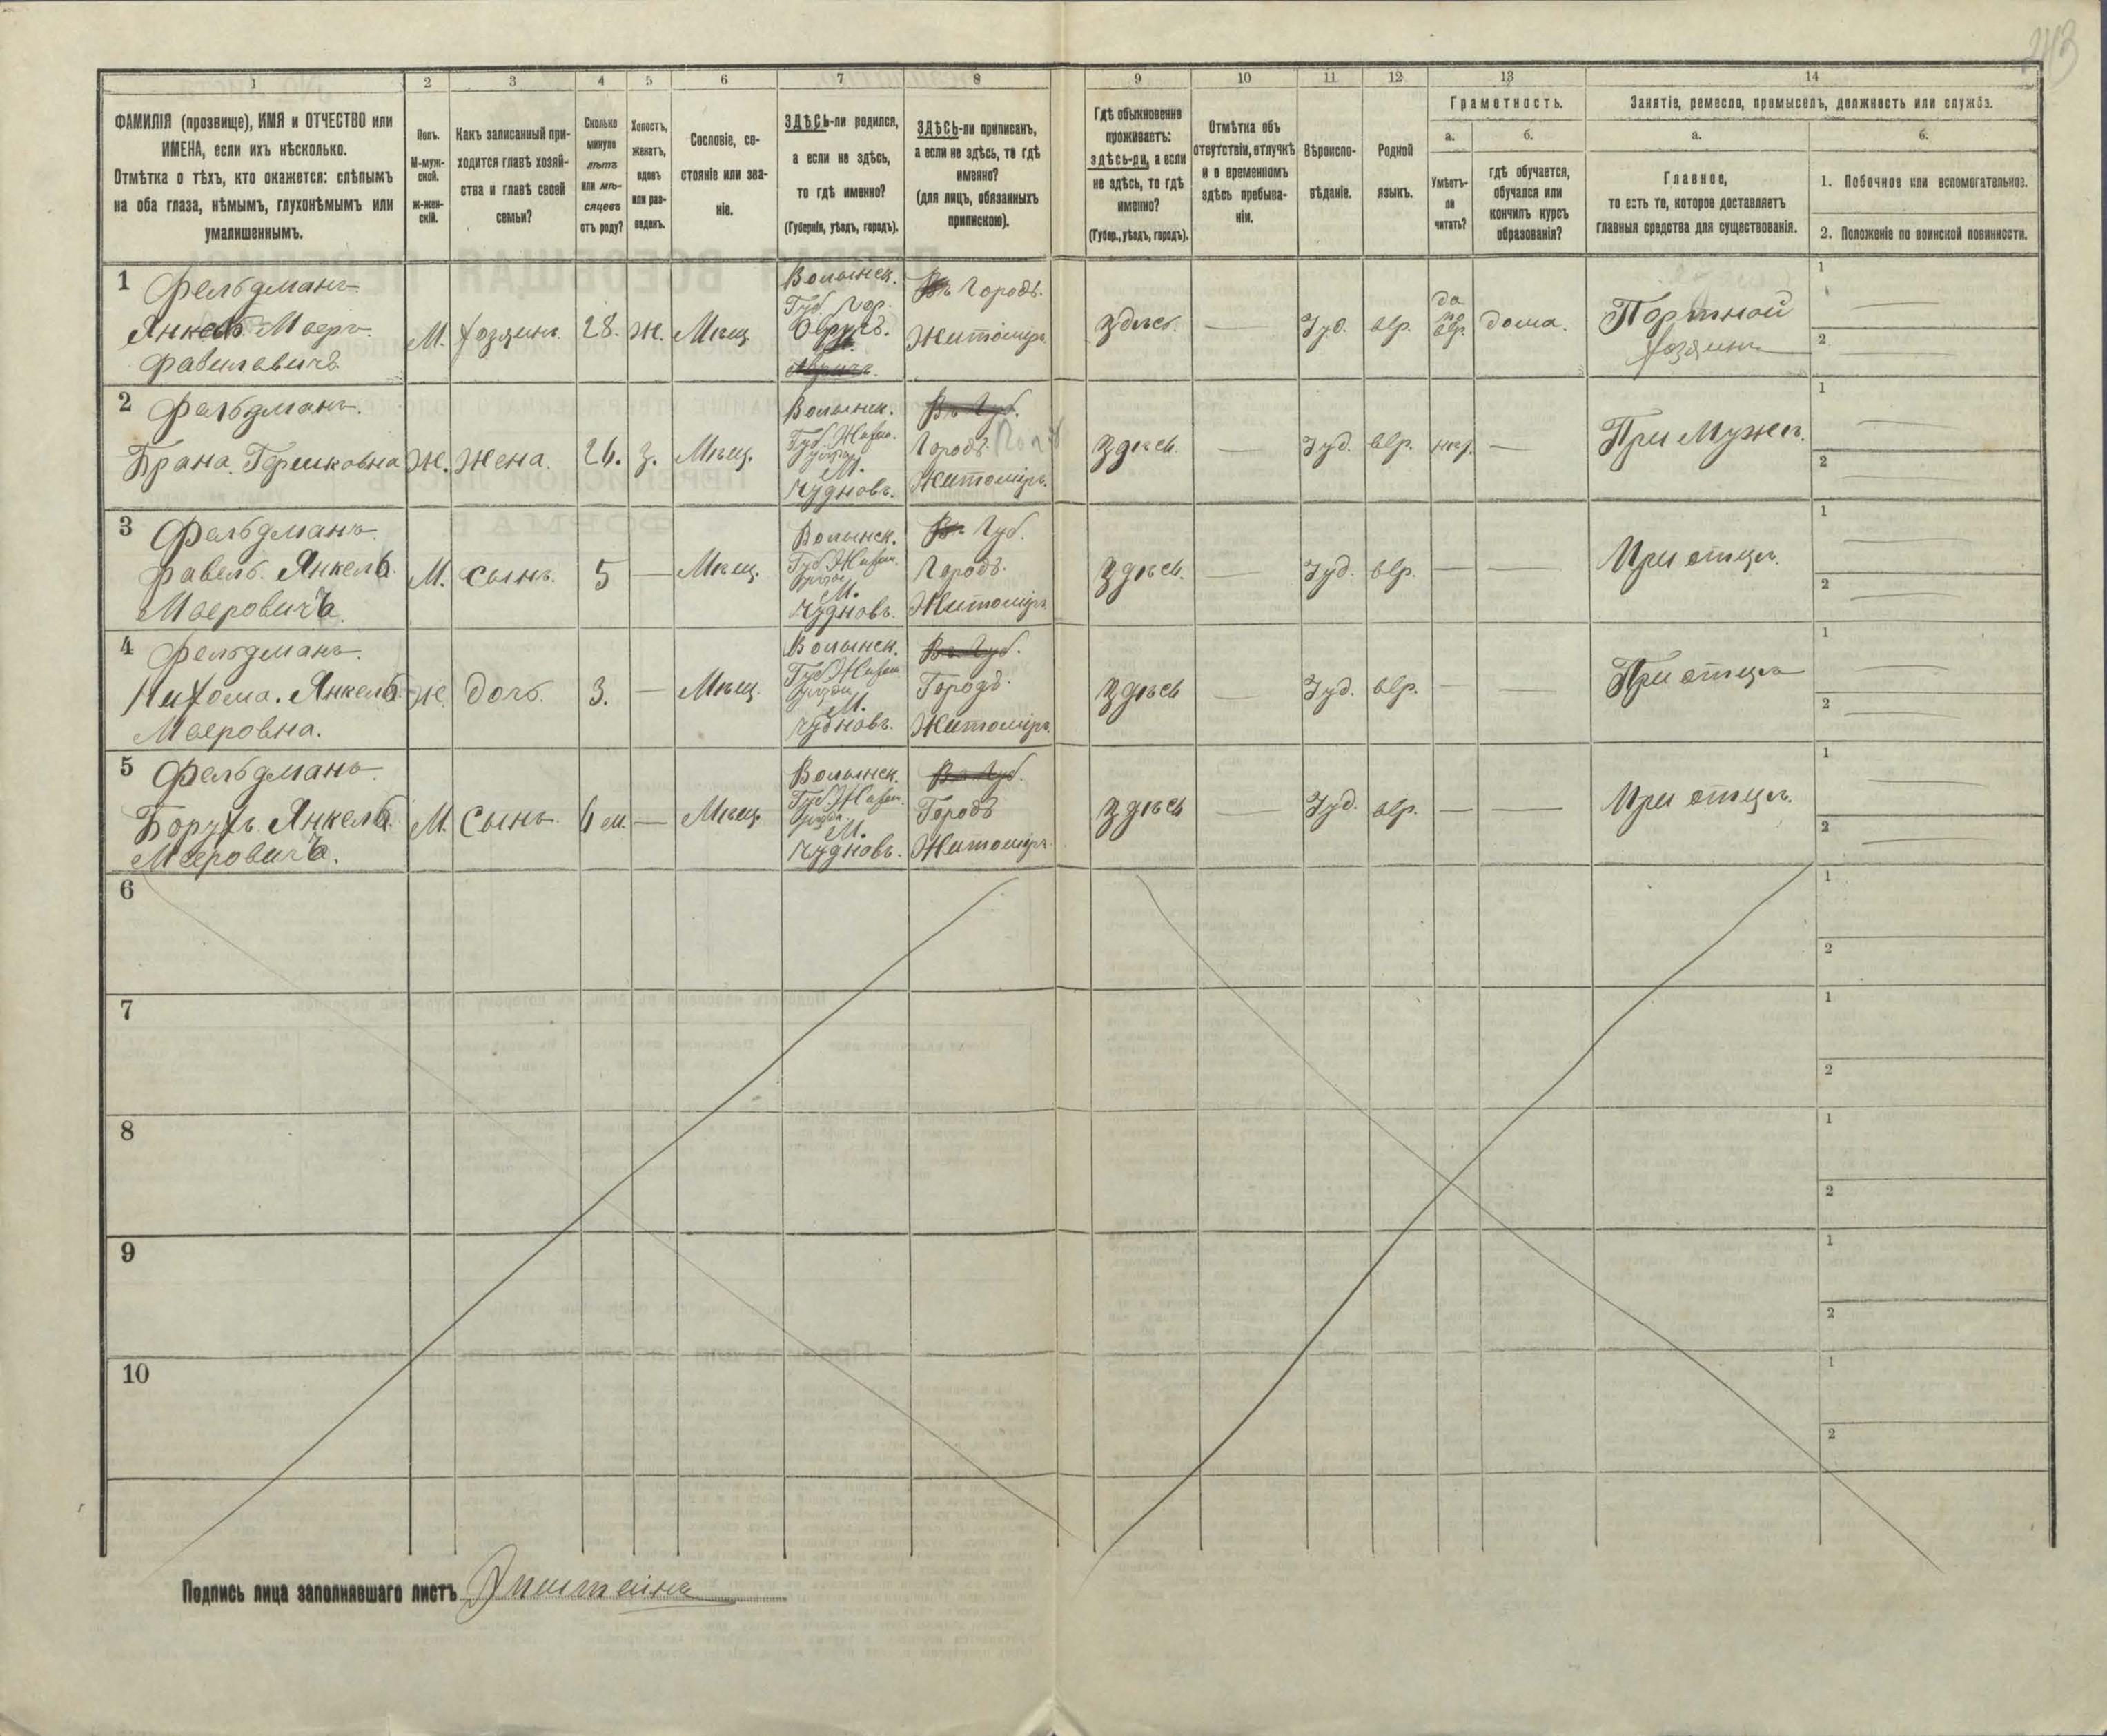 243
1
2
3
4
5
6
7
8
9
10
11
12
13
14
ФАМИЛІЯ (прозвище), ИМЯ и ОТЧЕСТВО или
ИМЕНА, если ихъ нѣсколько.
Отмѣтка о тѣхъ, кто окажется: слѣпымъ
на оба глаза, нѣмымъ, глухонѣмымъ или
умалишеннымъ.
Полъ.
М-муж-
ской.
ж-жен-
скій.
Какъ записанный при-
ходится главѣ хозяй-
ства и главѣ своей
семьи?
Сколько
минуло
лѣтъ
или мѣ-
сяцевъ
отъ роду?
Холостъ,
женатъ,
вдовъ
или раз-
веденъ.
Сословіе, со-
стояніе или зва-
ніе.
ЗДѢСЬ-ли родился,
а если не здѣсь,
то гдѣ именно?
(Губернія, уѣздъ, городъ).
ЗДѢСЬ-ли приписанъ,
а если не здѣсь, то гдѣ
именно?
(для лицъ, обязанныхъ
припискою).
Гдѣ обыкновенно
проживаетъ:
здѣсь-ли, а если
не здѣсь, то гдѣ
именно?
(Губер., уѣздъ, городъ).
Отмѣтка объ
отсутствіи, отлучкѣ
и о временномъ
здѣсь пребыва-
ніи.
Вѣроиспо-
вѣданіе.
Родной
языкъ.
Грамотность.
а.
Умѣетъ-
ли
читать?
б.
гдѣ обучается,
обучался или
кончилъ курсъ
образованія?
Занятіе, ремесло, промыселъ, должность или служба.
а.
Главное,
то есть то, которое доставляетъ
главныя средства для существованія.
б.
1. Побочное или вспомогательное.
2. Положеніе по воинской повинности.
1 Фельдманъ
Янкель Мееръ
Фавилевичъ
М.
хозяинъ
28.
ж.
Мѣщ.
Волынск.
Губ. Гор.
Овручъ.
Городъ.
Житоміръ
здѣсь.
—
Іуд.
евр.
да
по
евр.
дома.
Портной
хозяинъ
1
2
2 Фельдманъ.
Брана Гершковна
Ж.
жена.
26.
з.
Мѣщ.
Волынск.
Губ. Житом.
уѣзда
М.
Чудновъ.
Въ Губ.
Городъ
Житоміръ.
здѣсь
—
Іуд.
евр.
нѣт.
—
При Мужѣ.
1
2
3 Фельдманъ
Фавель. Янкель
Мееровичъ.
М.
сынъ.
5
—
Мѣщ.
Волынск.
Губ. Житом.
уѣзда
М.
Чудновъ.
Въ Губ.
Городъ.
Житоміръ
здѣсь.
—
Іуд.
евр.
—
—
При отцѣ.
1
2
4 Фельдманъ.
Нихома. Янкель
Мееровна.
Ж.
дочь.
3.
—
Мѣщ.
Волынск.
Губ. Житом.
уѣзда
М.
Чудновъ.
Въ Губ.
Городъ.
Житоміръ.
здѣсь
—
Іуд.
евр.
—
—
При отцѣ
1
2
5 Фельдманъ.
Борухъ. Янкель
Мееровичъ.
М.
Сынъ.
м.
—
Мѣщ.
Волынск.
Губ. Житом.
уѣзда
М.
Чудновъ.
Въ Губ.
Городъ
Житоміръ
здѣсь
—
Іуд.
евр.
—
—
При отцѣ.
1
2
6
1
2
7
1
2
8
1
2
9
1
2
10
1
2
Подпись лица заполнявшаго листъ